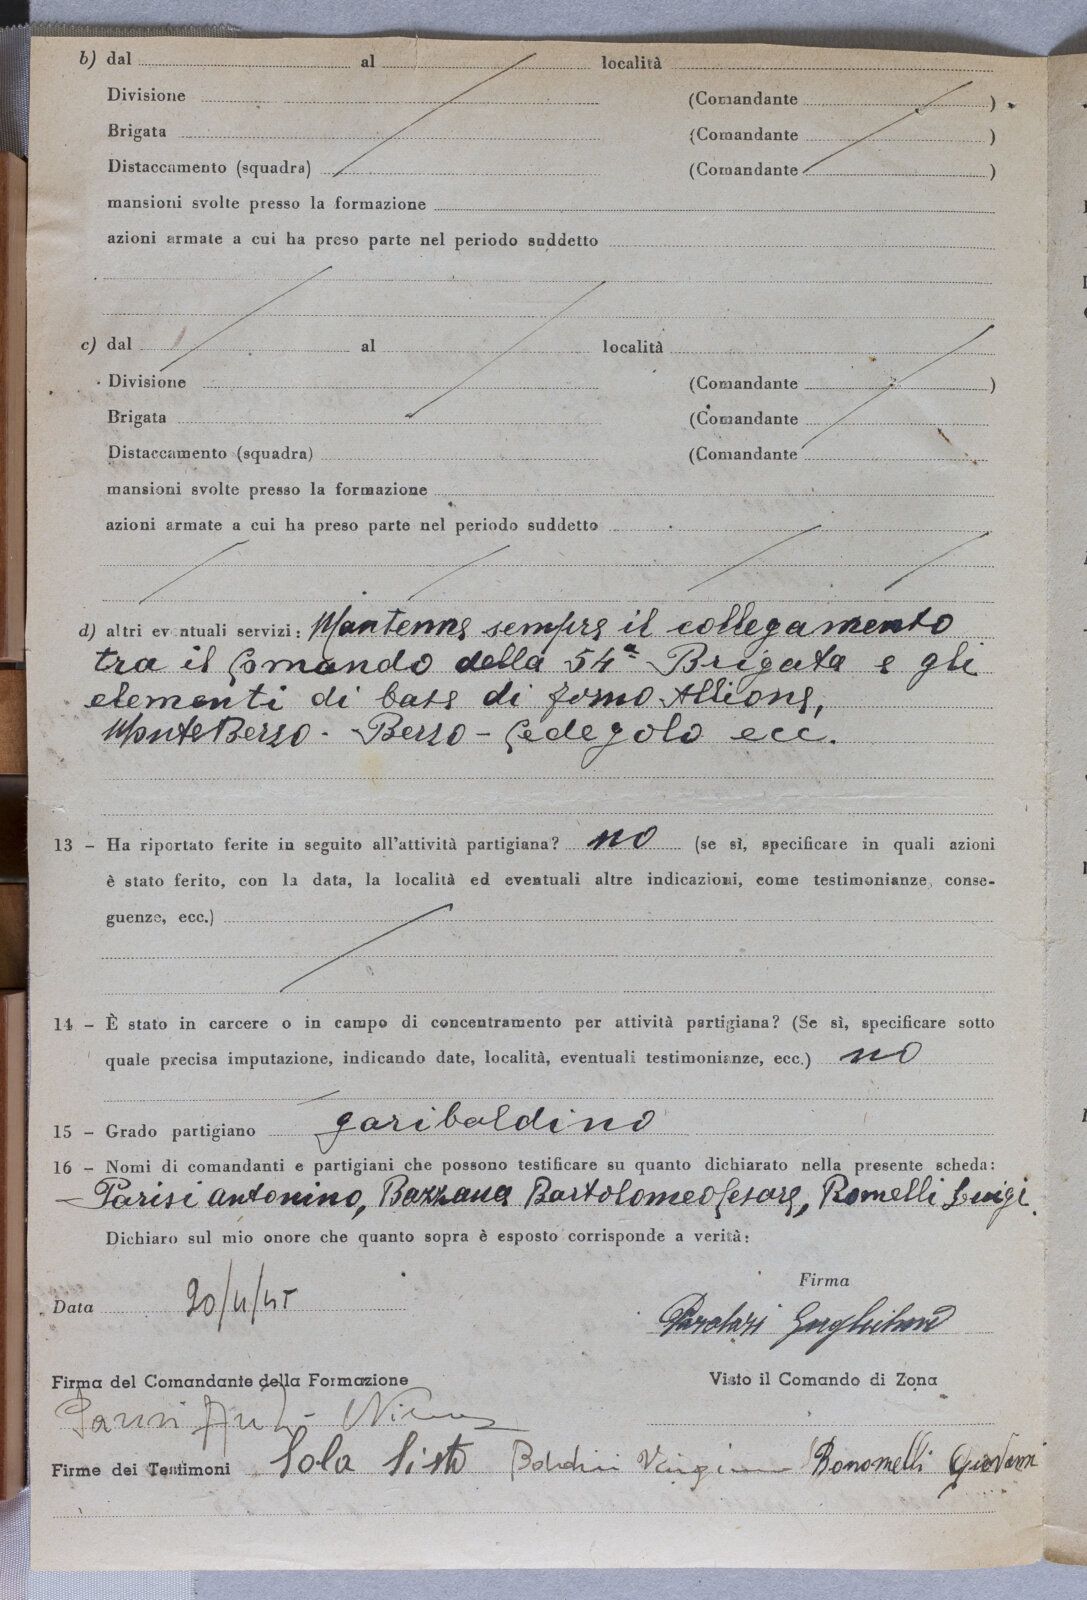 b) dal al località
Divisione (Comandante )
Brigata (Comandante )
Distaccamento (squadra) (Comandante )
mansioni svolte presso la formazione
azioni armate a cui ha preso parte nel periodo suddetto
c) dal al località
Divisione (Comandante )
Brigata (Comandante
Distaccamento (squadra) (Comandante
mansioni svolte presso la formazione
azioni armate a cui ha preso parte nel periodo suddetto
d) altri eventuali servizi: Mantenne sempre il collegamento
tra il Comando della 54ª Brigata e gli
elementi di base di Forno Allione,
Monte Berzo - Berzo - Cedegolo ecc.
13 - Ha riportato ferite in seguito all'attività partigiana? no (se sì, specificare in quali azioni
è stato ferito, con la data, la località ed eventuali altre indicazioni, come testimonianze, conse-
guenze, ecc.)
14 - È stato in carcere o in campo di concentramento per attività partigiana? (Se sì, specificare sotto
quale precisa imputazione, indicando date, località, eventuali testimonianze, ecc.) no
15 - Grado partigiano garibaldino
16 - Nomi di comandanti e partigiani che possono testificare su quanto dichiarato nella presente scheda:
Parisi Antonino, Bazzana Bartolomeo Cesare, Romelli Luigi.
Dichiaro sul mio onore che quanto sopra è esposto corrisponde a verità:
Firma
Data
Firma del Comandante della Formazione Visto il Comando di Zona
Firme dei Testimoni Sola Sisto Bonomelli Giovanni